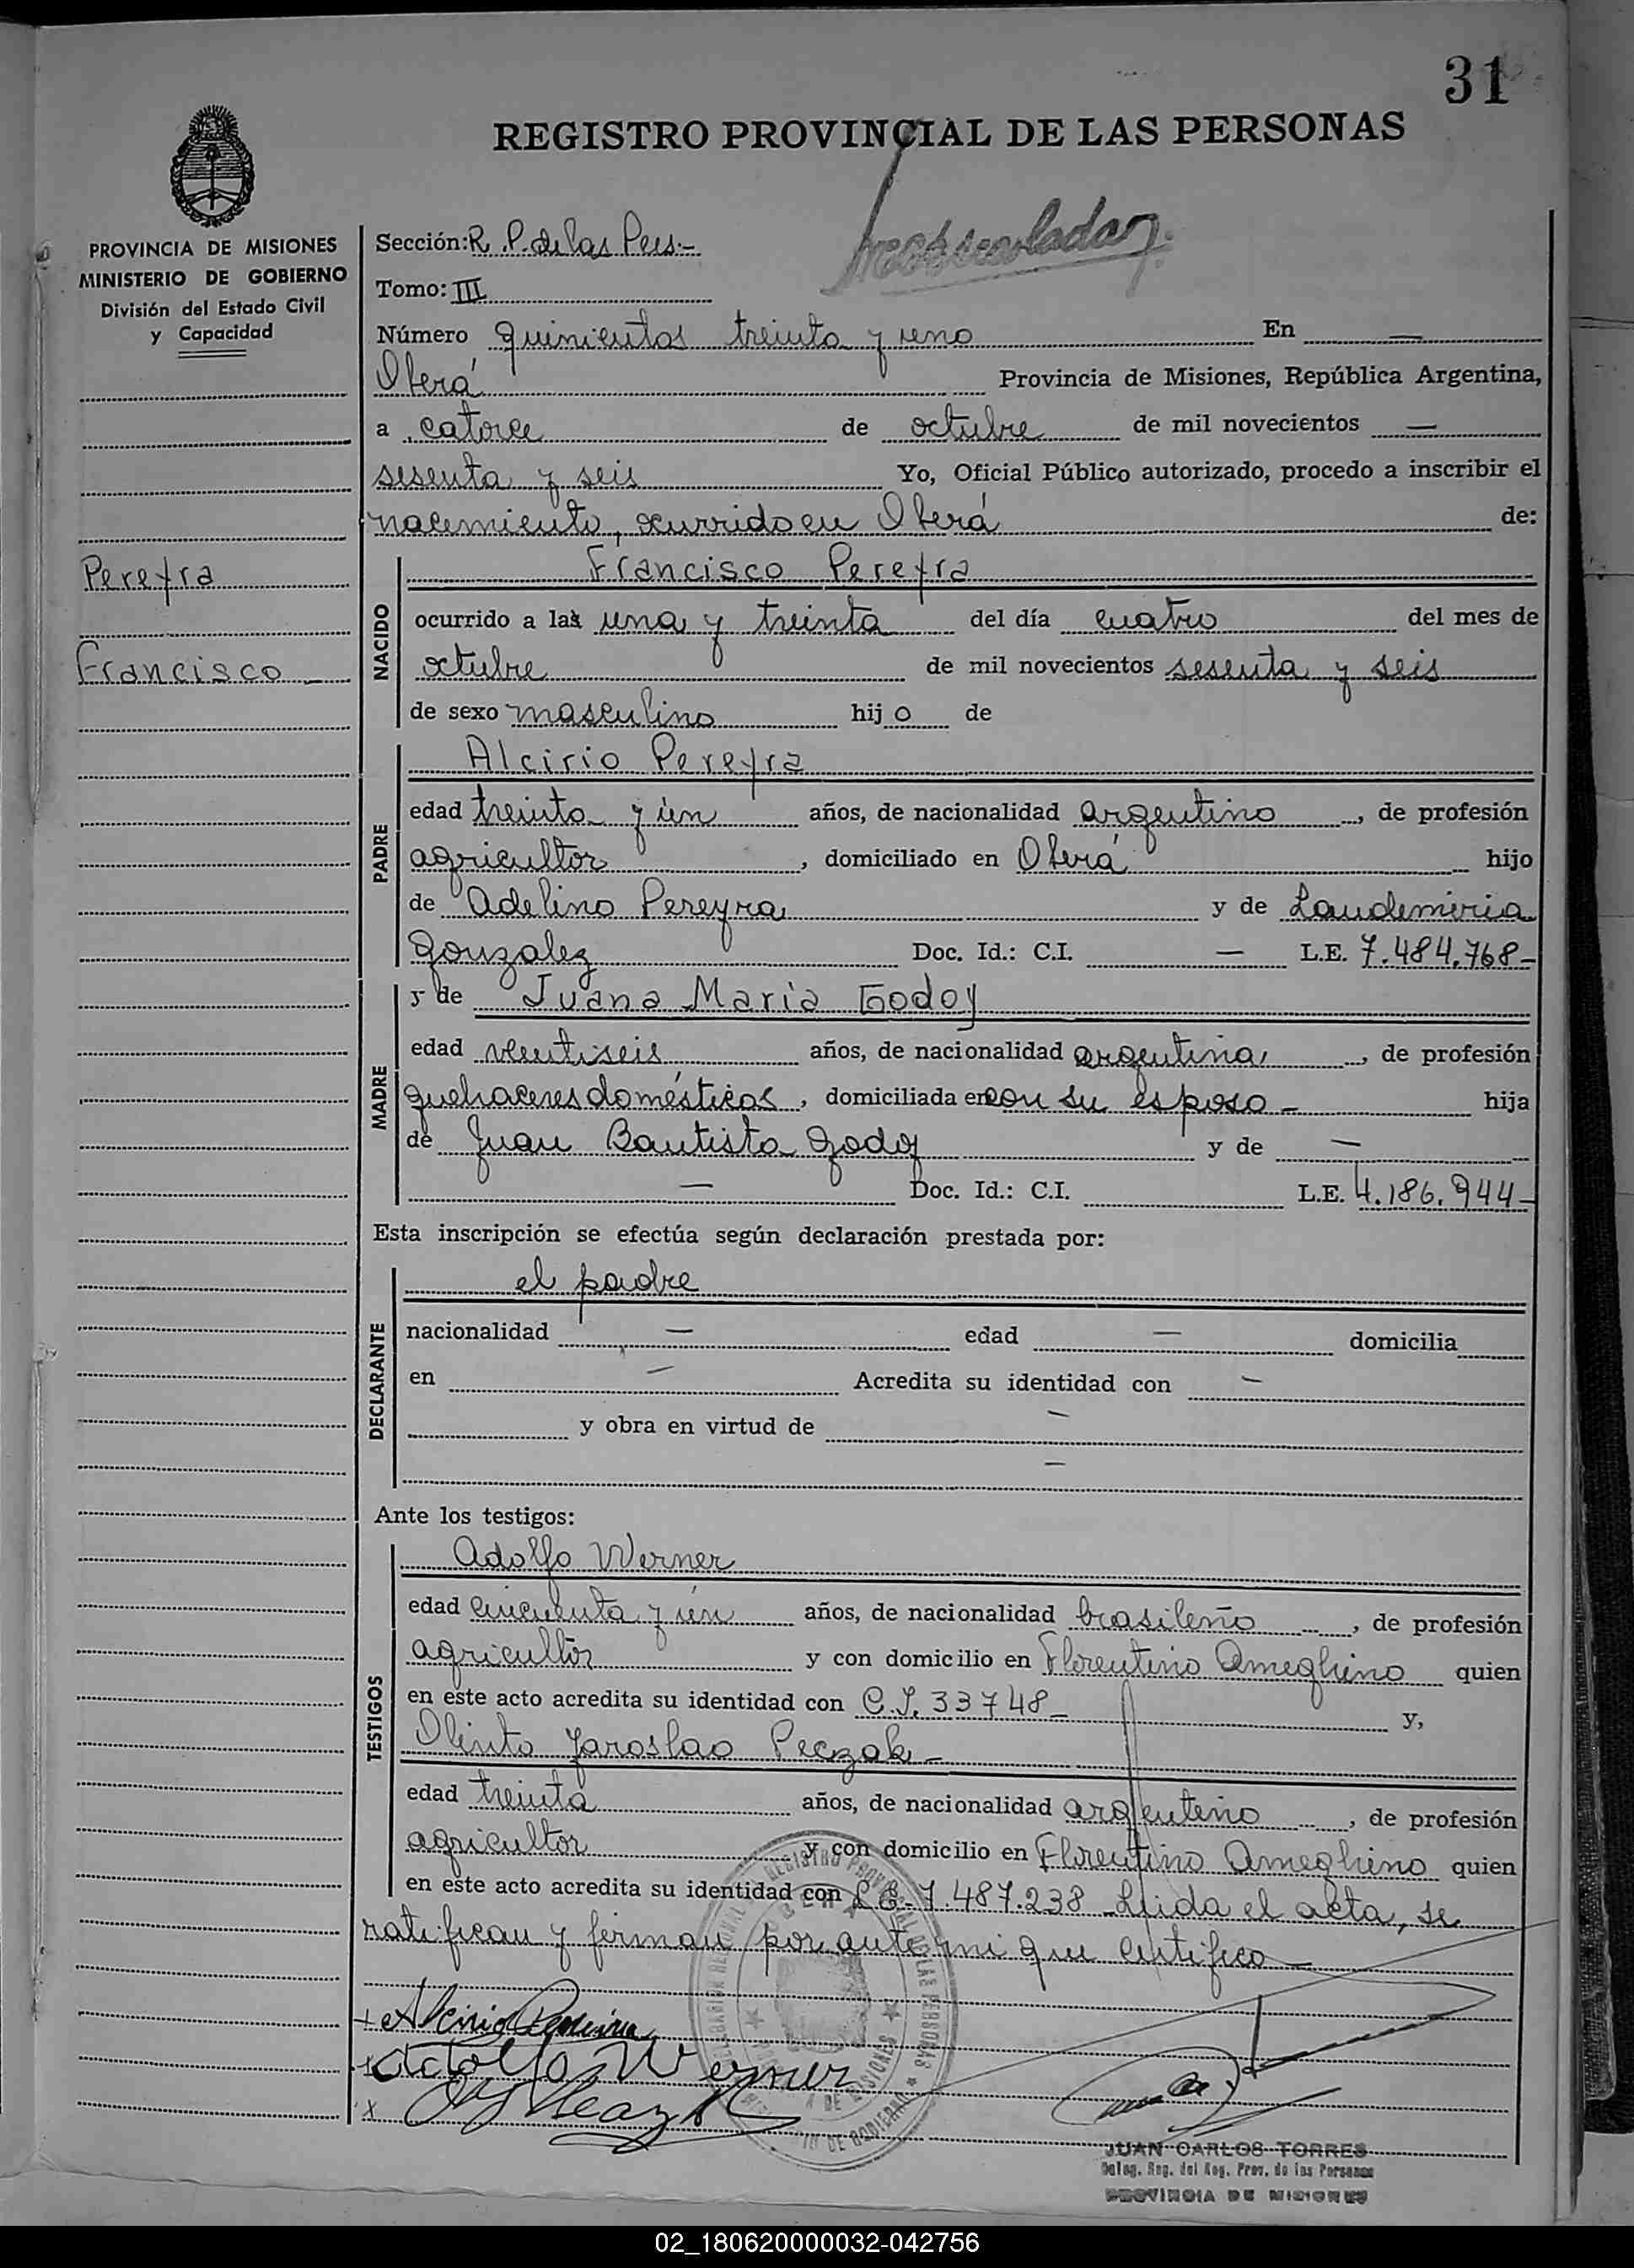 31
REGISTRO PROVINCIAL DE LAS PERSONAS
PROVINCIA DE MISIONES
MINISTERIO DE GOBIERNO
División del Estado Civil
y Capacidad
Pereyra
Francisco
Sección: R. P. de las Pers.-
Tomo: III
Número quinientos treinta y uno En —
Oberá Provincia de Misiones, República Argentina,
a catorce de octubre de mil novecientos —
sesenta y seis Yo, Oficial Público autorizado, procedo a inscribir el
nacimiento, ocurrido en Oberá de:
NACIDO
Francisco Pereyra
ocurrido a las una y treinta del día cuatro del mes de
octubre de mil novecientos sesenta y seis
de sexo masculino hijo de
PADRE
Alcirio Pereyra
edad treinta y ún años, de nacionalidad argentino, de profesión
agricultor, domiciliado en Oberá hijo
de Adelino Pereyra y de Laudemiria
Gonzalez Doc. Id.: C.I. — L.E. 7.484.768-
MADRE
y de Juana Maria Godoy
edad veintiseis años, de nacionalidad argentina, de profesión
quehaceres domésticos, domiciliada en con su esposo - hija
de Juan Bautista Godoy y de —
— Doc. Id.: C.I. L.E. 4.186.944-
Esta inscripción se efectúa según declaración prestada por:
DECLARANTE
el padre
nacionalidad — edad — domicilia
en — Acredita su identidad con —
y obra en virtud de —
—
Ante los testigos:
TESTIGOS
Adolfo Werner
edad cincuenta y ún años, de nacionalidad brasileño, de profesión
agricultor y con domicilio en Florentino Ameghino quien
en este acto acredita su identidad con C.I. 33748- y,
Olinto Jaroslao Peczak-
edad treinta años, de nacionalidad argentino, de profesión
agricultor y con domicilio en Florentino Ameghino quien
en este acto acredita su identidad con L.E. 7.487.238 - Leida el acta, se
ratifican y firman por ante mi que certifico-
Adolfo Werner
JUAN CARLOS TORRES
Deleg. Reg. del Reg. Prov. de las Personas
PROVINCIA DE MISIONES
02_180620000032-042756